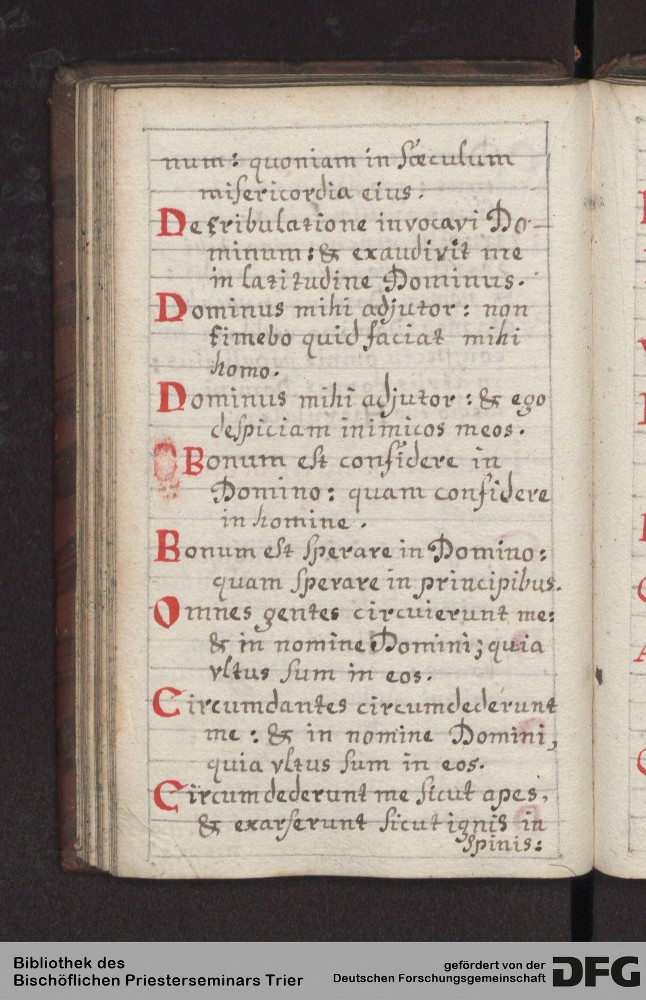 num: quoniam in sæculum
misericordia eius.
De tribulatione invocavi Do-
minum: & exaudivit me
in latitudine Dominus.
Dominus mihi adjutor: non
timebo quid faciat mihi
homo.
Dominus mihi adjutor: & ego
despiciam inimicos meos.
Bonum est confidere in
Domino: quam confidere
in homine.
Bonum est sperare in Domino:
quam sperare in principibus.
Omnes gentes circuierunt me:
& in nomine Domini; quia
vltus sum in eos.
Circumdantes circumdederunt
me: & in nomine Domini,
quia vltus sum in eos.
Circumdederunt me sicut apes,
& exarserunt sicut ignis in
spinis:
Bibliothek des
Bischöflichen Priesterseminars Trier
gefördert von der
Deutschen Forschungsgemeinschaft
DFG